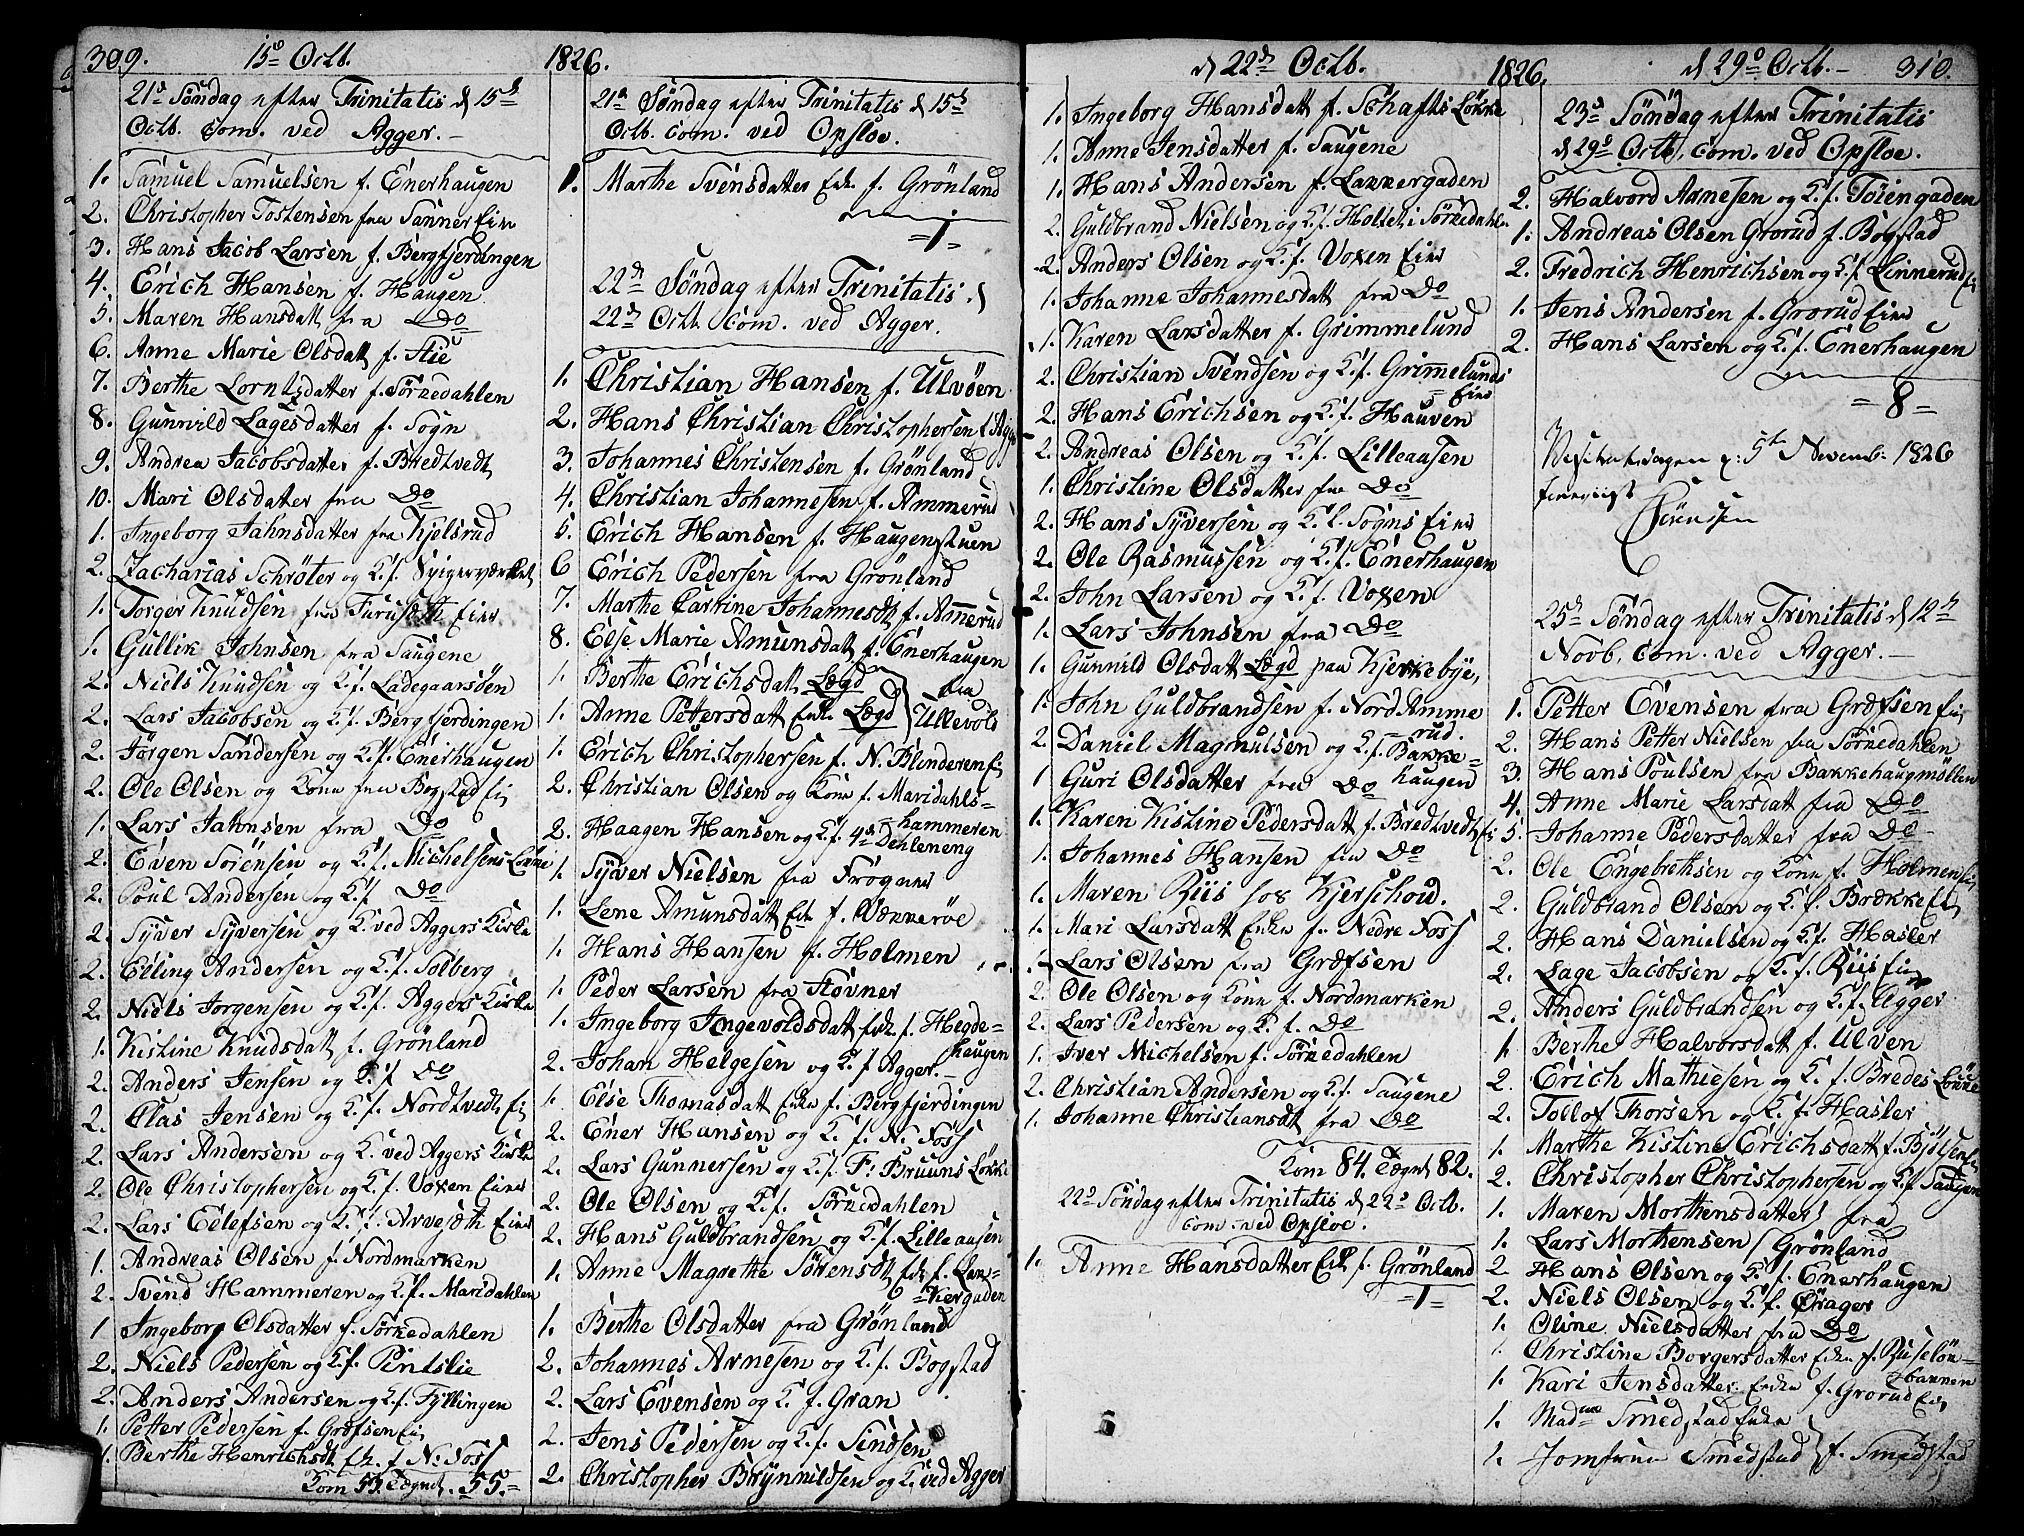 309. 15º Octb. 1826.
21º Söndag efter Trinitatis d 15de
Octb. com. ved Agger. —
1. Samuel Samuelsen f. Enerhaugen
2. Christopher Tostensen fra Sanner Eier
3. Hans Jacob Larsen f. Bergfjerdingen
4. Erich Hansen f. Haugen
5. Maren Hansdatt fra Do
6. Anne Marie Olsdatt f. Stie
7. Berthe Lorntsdatter f. Sörkedahlen
8. Gunnild Lagesdatter f. Sogn
9. Andrea Jacobsdatter f. Bredtvedt
10. Mari Olsdatter fra Do
1. Ingeborg Jahnsdatter fra Kjelsrud
2. Zacharias Schröter og K. f. Spigerværket
1. Torger Knudsen fra Furuseth Eier
1. Gullik Johnsen fra Saugene
2. Niels Knudsen og K. f. Ladegaarsöen
2. Lars Jacobsen og K. f. Bergfjerdingen
2. Jörgen Sandersen og K. f. Enerhaugen
2. Ole Olsen og Kone fra Bogstad Ei
1. Lars Jahnsen fra Do
2. Even Sörensen og K. f. Michelsens Løkke
2. Poul Andersen og K. f. Do
2. Syver Syversen og K. ved Aggers Kirke
2. Elling Andersen og K. f. Solberg
2. Niels Jörgensen og K. f. Aggers Kirke
1. Kistine Knudsdatt f. Grönland
2. Anders Jensen og K. f. Do
2. Clas Jensen og K. f. Nordtvedt Ei
2. Lars Andersen og K. ved Aggers Kirke
2. Ole Christophersen og K. f. Voxen Eier
2. Lars Ellefsen og K. f. Arveseth Eier
1. Andreas Olsen f. Nordmarken
2. Svend Hammeren og K. f. Maridahlen
1 Ingeborg Olsdatter f. Sörkedahlen
2. Niels Pedersen og K. f. Pintslie
2. Anders Andersen og K. f. Fyllingen
1. Petter Pedersen f. Grefsen Ei
1. Berthe Henrichsdt Ek. f. N: Foss
Kom 55. Tegnt. 55. =
21de Söndag efter Trinitatis d 15de
Octb. com. ved Opsloe.
1. Marthe Svensdatter Enk. f. Grönland
= 1 =
22de Söndag efter Trinitatis. d
22de Octb. com. ved Agger.
1. Christian Hansen f. Ulvöen
2. Hans Christian Christophersen f. Agge
3. Johannes Christensen f. Grönland
4. Christian Johannesen f. Ammerud
5. Erich Hansen f. Haugenstuen
6 Erich Pedersen fra Grönland
7. Marthe Catrine Johannesdt f. Amerud
8. Else Marie Amunsdatt f. Enerhaugen
1. Berthe Erichsdatt Lægd } fra
1. Anne Pettersdatt Enk. Lægd } Ullevold
1. Erich Christophersen f. N. Blinderen Ei
2. Christian Olsen og Kone f. Maridahls-
hammeren
2. Haagen Hansen og K. f. 4de Dehleneng
1. Syver Nielsen fra Frogner
1. Lene Amunsdatt Ek f. Wækkeröe
1. Hans Hansen f. Holmen
1. Peder Larsen fra Stovner
1. Ingeborg Ingevoldsdatt Enk. f. Hegde=
haugen
2. Johan Helgesen og K. f. Agger. —
1. Else Thomasdatt Enke f. Bergfjerdingen
2. Ener Hansen og K. f. N. Foss
2. Lars Gunnersen og K. f. F: Bruuns Løkke
2. Ole Olsen og K. f. Sörkedahlen
2. Hans Guldbrandsen og K. f. Lilleausen
1. Anne Magrethe Sörensdt Enk f. Lak-
kergaden
1. Berthe Olsdatter fra Grönland
2. Johannes Arnesen og K. f. Bogstad
2. Lars Evensen og K. f. Gran
2. Jens Pedersen og K. f. Sinsen
2. Christopher Brynnildsen og K. ved Agger
d 22de Octb. 1826.
1. Ingeborg Hansdatt f. Schafts Løkke
1. Anne Jensdatter f. Saugene
1. Hans Andersen f. Lakkergaden
2. Guldbrand Nielsen og K. f. Holset i Sörkedahl.
2. Anders Olsen og K. f. Voxen Eier
1. Johanne Johannesdatt fra Do
1. Karen Larsdatter f. Grimmelund
2. Christian Svendsen og K. f. Grimelunds
= Eier
2. Hans Erichsen og K. f. Hauven
2. Andreas Olsen og K. f. Lilleausen
1. Christine Olsdatter fra Do
2. Hans Syversen og K. f. Sogns Eier
2. Ole Rasmussen og K. f. Enerhaugen
2. John Larsen og K. f. Voxen
1. Lars Johnsen fra Do
1. Gunnild Olsdatt Lægd paa Kjerkebye,
1. John Guldbrandsen f. Nord Amme
rud.
2. Daniel Magnulsen og K. f. Bakke=
haugen
1 Guri Olsdatter fra Do
1. Karen Kistine Pedersdatt f. Bredtvedt Ei
1. Johannes Hansen fra Do
1. Maren Riis hos Kjerschow.
1. Mari Larsdatt Enke f. Nedre Foss
1. Lars Olsen fra Grefsen
2. Ole Olsen og Kone f. Nordmarken
2. Lars Pedersen og K. f. Do
1. Iver Michelsen f. Sörkedahlen
2. Christian Andersen og K. f. Saugene
1. Johanne Christiansdt fra Do
Kom 84. Tegnt 82.
22º Söndag efter Trinitatis d 22º Octb.
com. ved Opsloe.
1. Anne Hansdatter Enk f. Grönland
= 1 =
d 29º Octb. — 310.
23de Söndag efter Trinitatis
d 29º Octb. com. ved Opsloe.
2. Halvord Aanesen og K. f. Töiengaden
1. Andreas Olsen Grorud f. Bogstad
2. Fredrich Henrichsen og K. f. Linnerud Ei
1. Jens Andersen f. Grorud Eier
2. Hans Larsen og K. f. Enerhaugen
= 8 =
5te Novemb: 1826
25de Söndag efter Trinitatis d 12te
Novb. com. ved Agger. —
1. Petter Evensen fra Grefsen Ei
2. Hans Petter Nielsen fra Sörkedahlen
3. Hans Poulsen fra Bakkehaugmøllen
4. Anne Marie Larsdatt fra Do
5. Johanne Pedersdatter fra Do
2. Ole Engebrethsen og Kone f. Holmen Ei
2. Guldbrand Olsen og K. f. Brække Ei
2. Hans Danielsen og K. f. Hasler
2. Lage Jacobsen og K. f. Riis Ei
2. Anders Guldbrandsen og K. f. Agger
1. Berthe Halvorsdatt f. Ulven
2. Erich Mathiesen og K. f. Bredes Løkke
2. Tollof Thorsen og K. f. Hasler
1. Marthe Kistine Erichsdatt f. Bjölsen Ei
2. Christopher Christophersen og K. f. Saugene
1. Maren Morthensdatter } fra
1. Lars Morthensen } Grönland
2 Hans Olsen og K. f. Enerhaugen
2. Niels Olsen og K. f. Örager
1. Oline Nielsdatter fra Do
1. Christine Borgersdatter Enke f. Ruselön-
bakken
1. Kari Jensdatter Enke f. Grorud Ei
1. Madme Smedstad Enke }
1. Jomfrue Smedstad } f. Smedstad